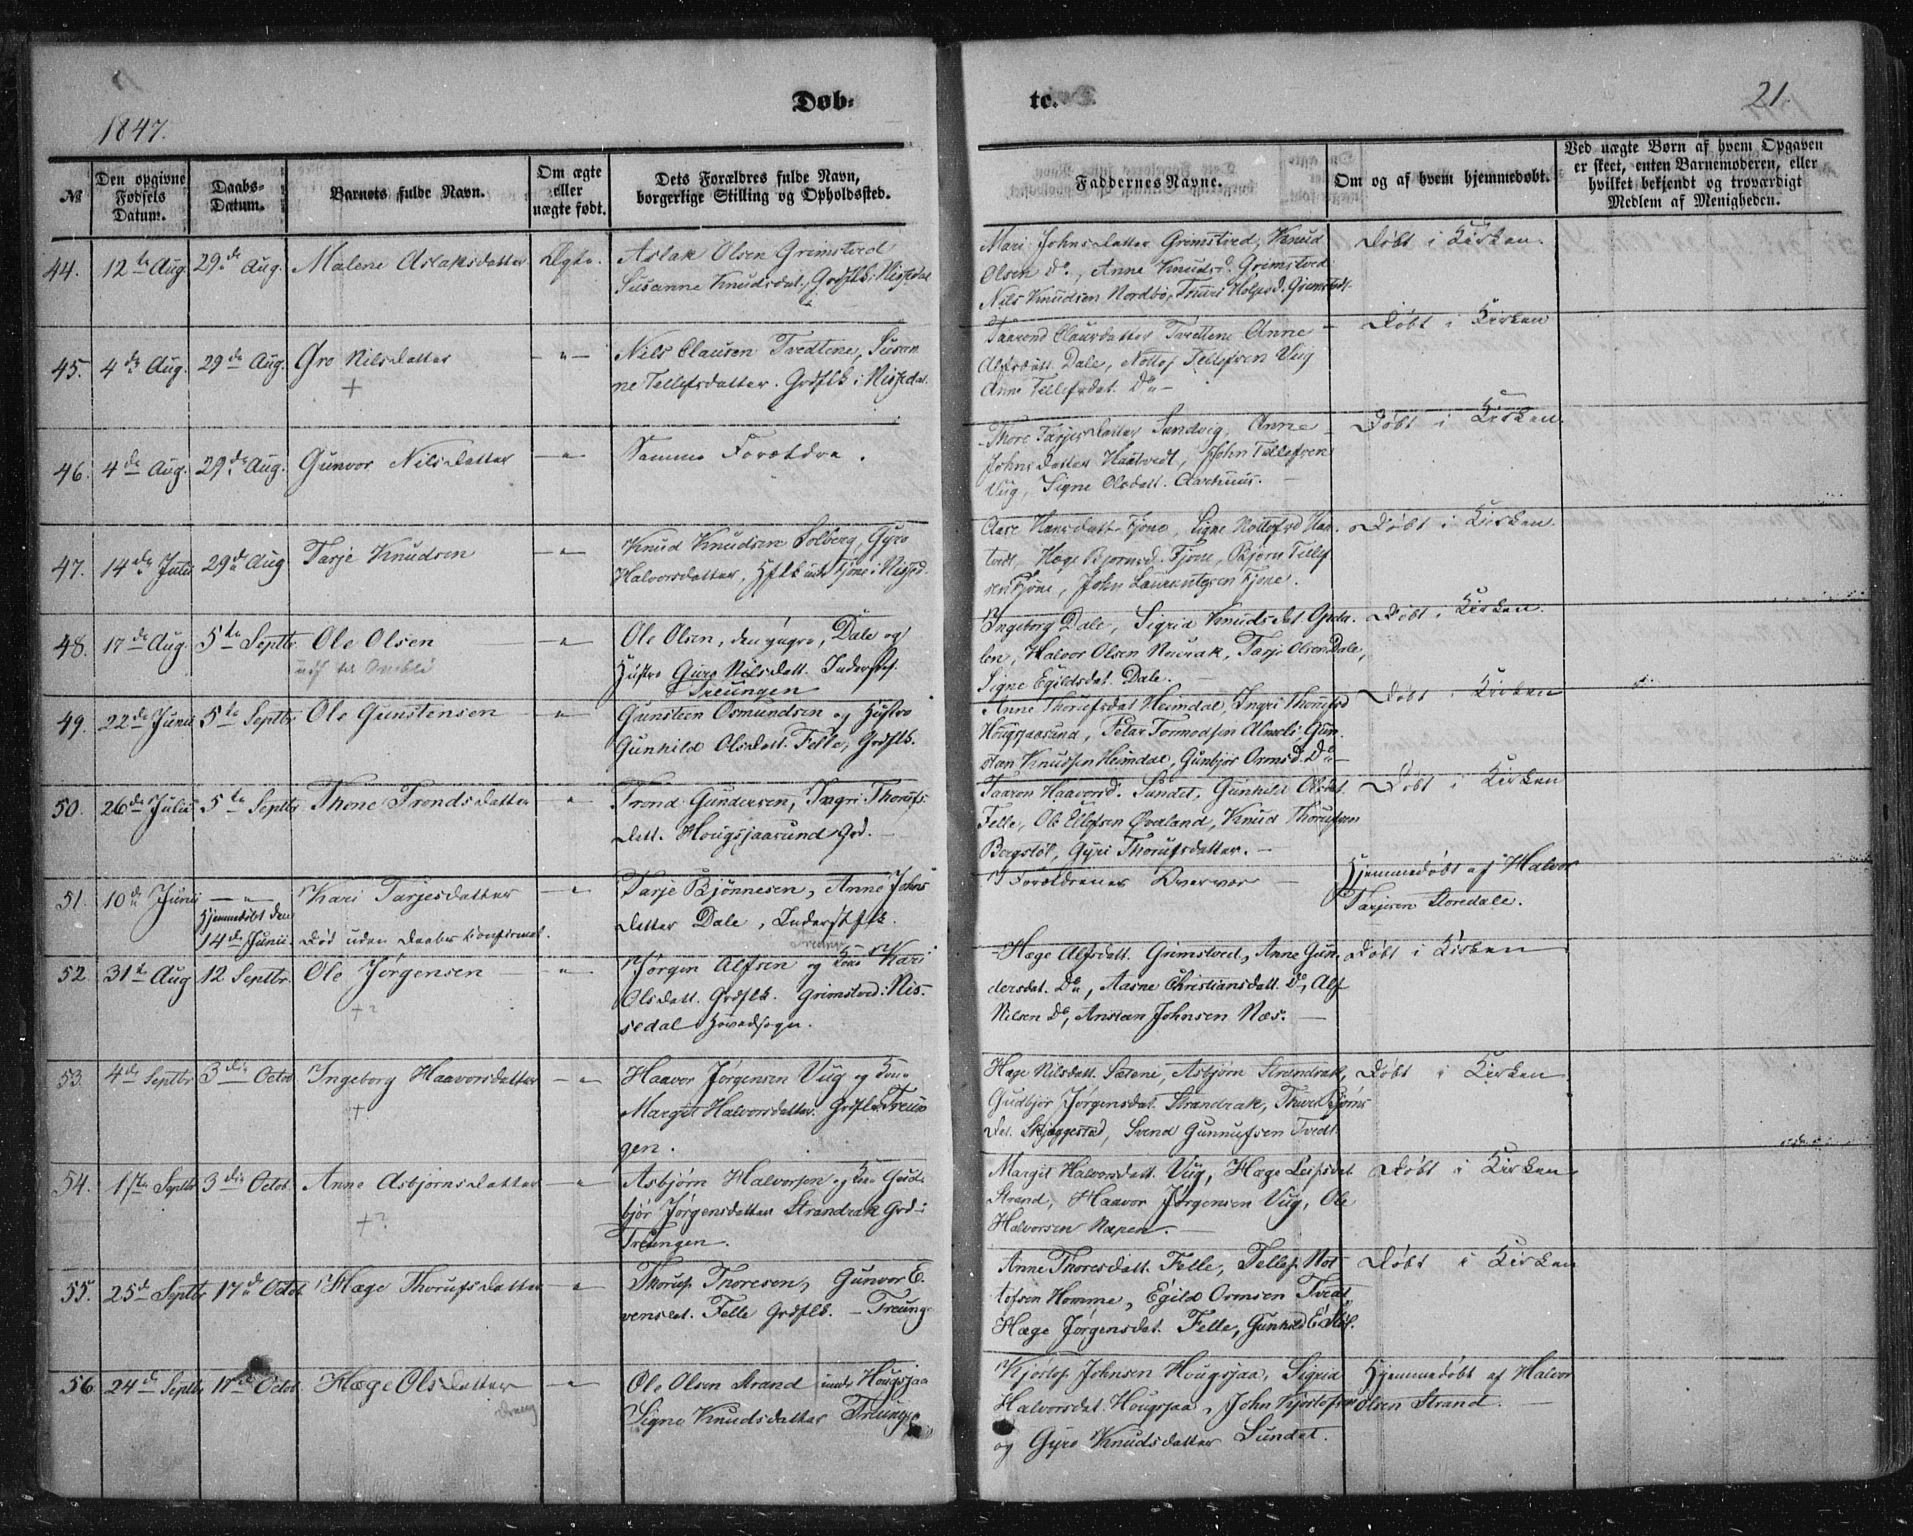 Døb-
te.
21.
1847.
№
Den opgivne Fødsels Datum.
Daabs-Datum.
Barnets fulde Navn.
Om ægte eller uægte født.
Dets Forældres fulde Navn, borgerlige Stilling og Opholdssted.
Faddernes Navne.
Om og af hvem hjemmedøbt.
Ved uægte Børn af hvem Opgaven er skeet, enten Barnemoderen, eller hvilket bekjendt og troværdigt Medlem af Menigheden.
44. 12te Aug. 29de Aug. Malene Aslaksdatter Ægte.
Aslak Olsen Grimstved
Susanne Knudsdat. Grdflk. i Nissedal
Mari Johnsdatter Grimstved, Knud
Olsen Do, Anne Knudsd. Grimstved
Nils Knudsen Nordbø, Grimstvt.
Døbt i Kirken.
45. 4de Aug. 29de Aug. Gro Nilsdatter — " —
+
Nils Clausen Tvedtene, Susan
ne Tellefsdatter. Grdflk i Nissedal.
Taarond Clausdatter Tvedtene Anne
Alfsdatt. Dale, Nottof Tellefsen Vüg
Anne Tellefsdat. Do —
Døbt i Kirken
46. 4de Aug. 29de Aug. Gunvor Nilsdatter — " —
Samme Forældre.
Thore Tarjesdatter Sandvig, Anne
Johnsdatter Haatvedt, John Tellefsen
Vüg, Signe Olsdatt. Aarhuus. —
Døbt i Kirken.
47. 14de Juni 29de Aug Tarje Knudsen — " —
Knud Knudsen Solberg, Gyro
Halvorsdatter, Hflk und. Fjone i Nissed.
Aase Hansdatt. Fjone, Signe Nottofsd Haa-
tvedt, Hæge Bjornsd. Fjone, Bjørn Tellef
sen Fjone, John Laurentzsen Fjone.
Døbt i Kirken.
48. 17de Aug. 5te Septbr Ole Olsen "
Ole Olsen, den yngre, Dale og
Hustro Guro Nilsdatt. Inderstf.
Treungen
Ingeborg Dale, Sigrid Knudsdat.
Halvor Olsen Tarje Olsen Dale,
Signe Egildsdat. Dale. —
Døbt i Kirken.
49. 22de Junii 5te Septbr Ole Gunstensen — " —
Gunsteen Osmundsen og Hustro
Gunhild Olsdatt. Felle, Grdflk.
Anne Thorufsdat Heimdal, Ingri Thorufsd
Hougsjaasund, Petar Tormodsen Gun-
sten Knudsen Heimdal, Gunbjør Ormsd. Do —
Døbt i Kirken
50. 26de Julii 5te Septbr Thone Trondsdatter "
Trond Gundersen, Ingri Thorufs-
datt. Hougsjaasund Grd. —
Taaron Haavorsd. Sundet, Gunhild Olsdat.
Felle, Ole Ellefsen Øverland, Knud Thorufsen
Bergsløk, Gyri Thorufsdatter. —
Døbt i Kirken
51. 10de Junii — " — Kari Tarjesdatter — " —
Hjemmedøbt den
14de Junii. Død uden Daabs Confirmat.
Tarje Bjønnesen, Anne Johns
datter Dale, Inderstflk.
Treungen
I Forældrenes Overvær —
Hjemmedøbt af Halvor
Tarjesen Storedale.
52. 31te Aug 12 Septbr. Ole Jørgensen — " —
+?
Jørgen Alfsen og Kone Kari
Olsdatt. Grdflk. Grimstved: Nis-
sedal Hovedsogn.
Hæge Alfsdatt. Grimstved, Anne Gun-
dersdat. Do, Aasne Christiansdatt. Do, Alf
Nilsen Do, Ansteen Johnsen Næs. —
Døbt i Kirken
53. 4de Septbr 3die Octob Ingeborg Haavorsdatter — " —
+
Haavor Jørgensen Vüg og Kone
Margit Halvorsdatter. Grdflk. Treun
gen.
Hæge Nilsdatt. Sætene, Asbjørn Strandrak,
Gudbjør Jørgensdat. Strandrak, Bjørns
dat. Skjeggestad, Svend Gunnufsen Tvedt.
Døbt i Kirken
54. 1ste Septbr 3die Octob. Anne Asbjørnsdatter — " —
+?
Asbjørn Halvorsen og Kone Gud
bjør Jørgensdatter Strandrak Grd:
Treungen.
Margit Halvorsdatt. Vüg, Hæge Leifsdat.
Strand, Haavor Jørgensen Vüg, Ole
Halvorsen Næpen. —
Døbt i Kirken
55. 25de Septbr 17de Octob. Hæge Thorufsdatter "
Thoruf Thoresen, Gunvor E-
vensdat. Felle Grdflk. — Treung-
Anne Thoresdatt. Felle, Tellef Not
tofsen Homme, Egild Ormsen Tvedt,
Hæge Jørgensdat. Felle, Gunhild
Døbt i Kirken
56 24de Septbr 17de Octob. Hæge Olsdatter — " —
Ole Olsen Strand und. Hougsjaa
Signe Knudsdatter Treung-
Kjøstof Johnsen Hougsjaa, Sigrid
Halvorsdat. Hougsjaa, John Kjøstofsen
og Gyro Knudsdatter Sundet.
Hjemmedøbt af Halvor
Olsen Strand. —